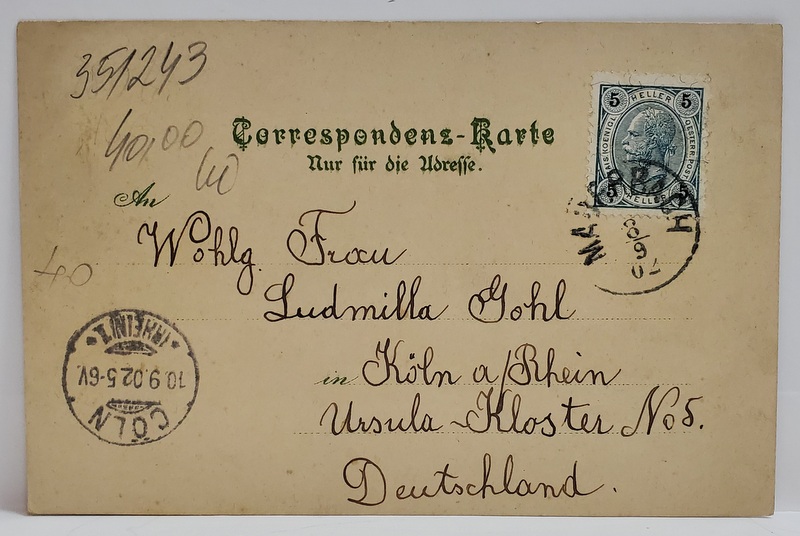 351243
40,00
40
40
Correspondenz-Karte
Nur für die Adresse.
An
Wohlg. Frau
Ludmilla Gohl
in Köln a/Rhein
Ursula-Kloster No 5.
Deutschland.
5 HELLER 5
KAIS. KOENIGL. OESTERR. POST
5 HELLER 5
8/9 02
CÖLN
10.9.02.5-6V.
*(RHEIN)1.*